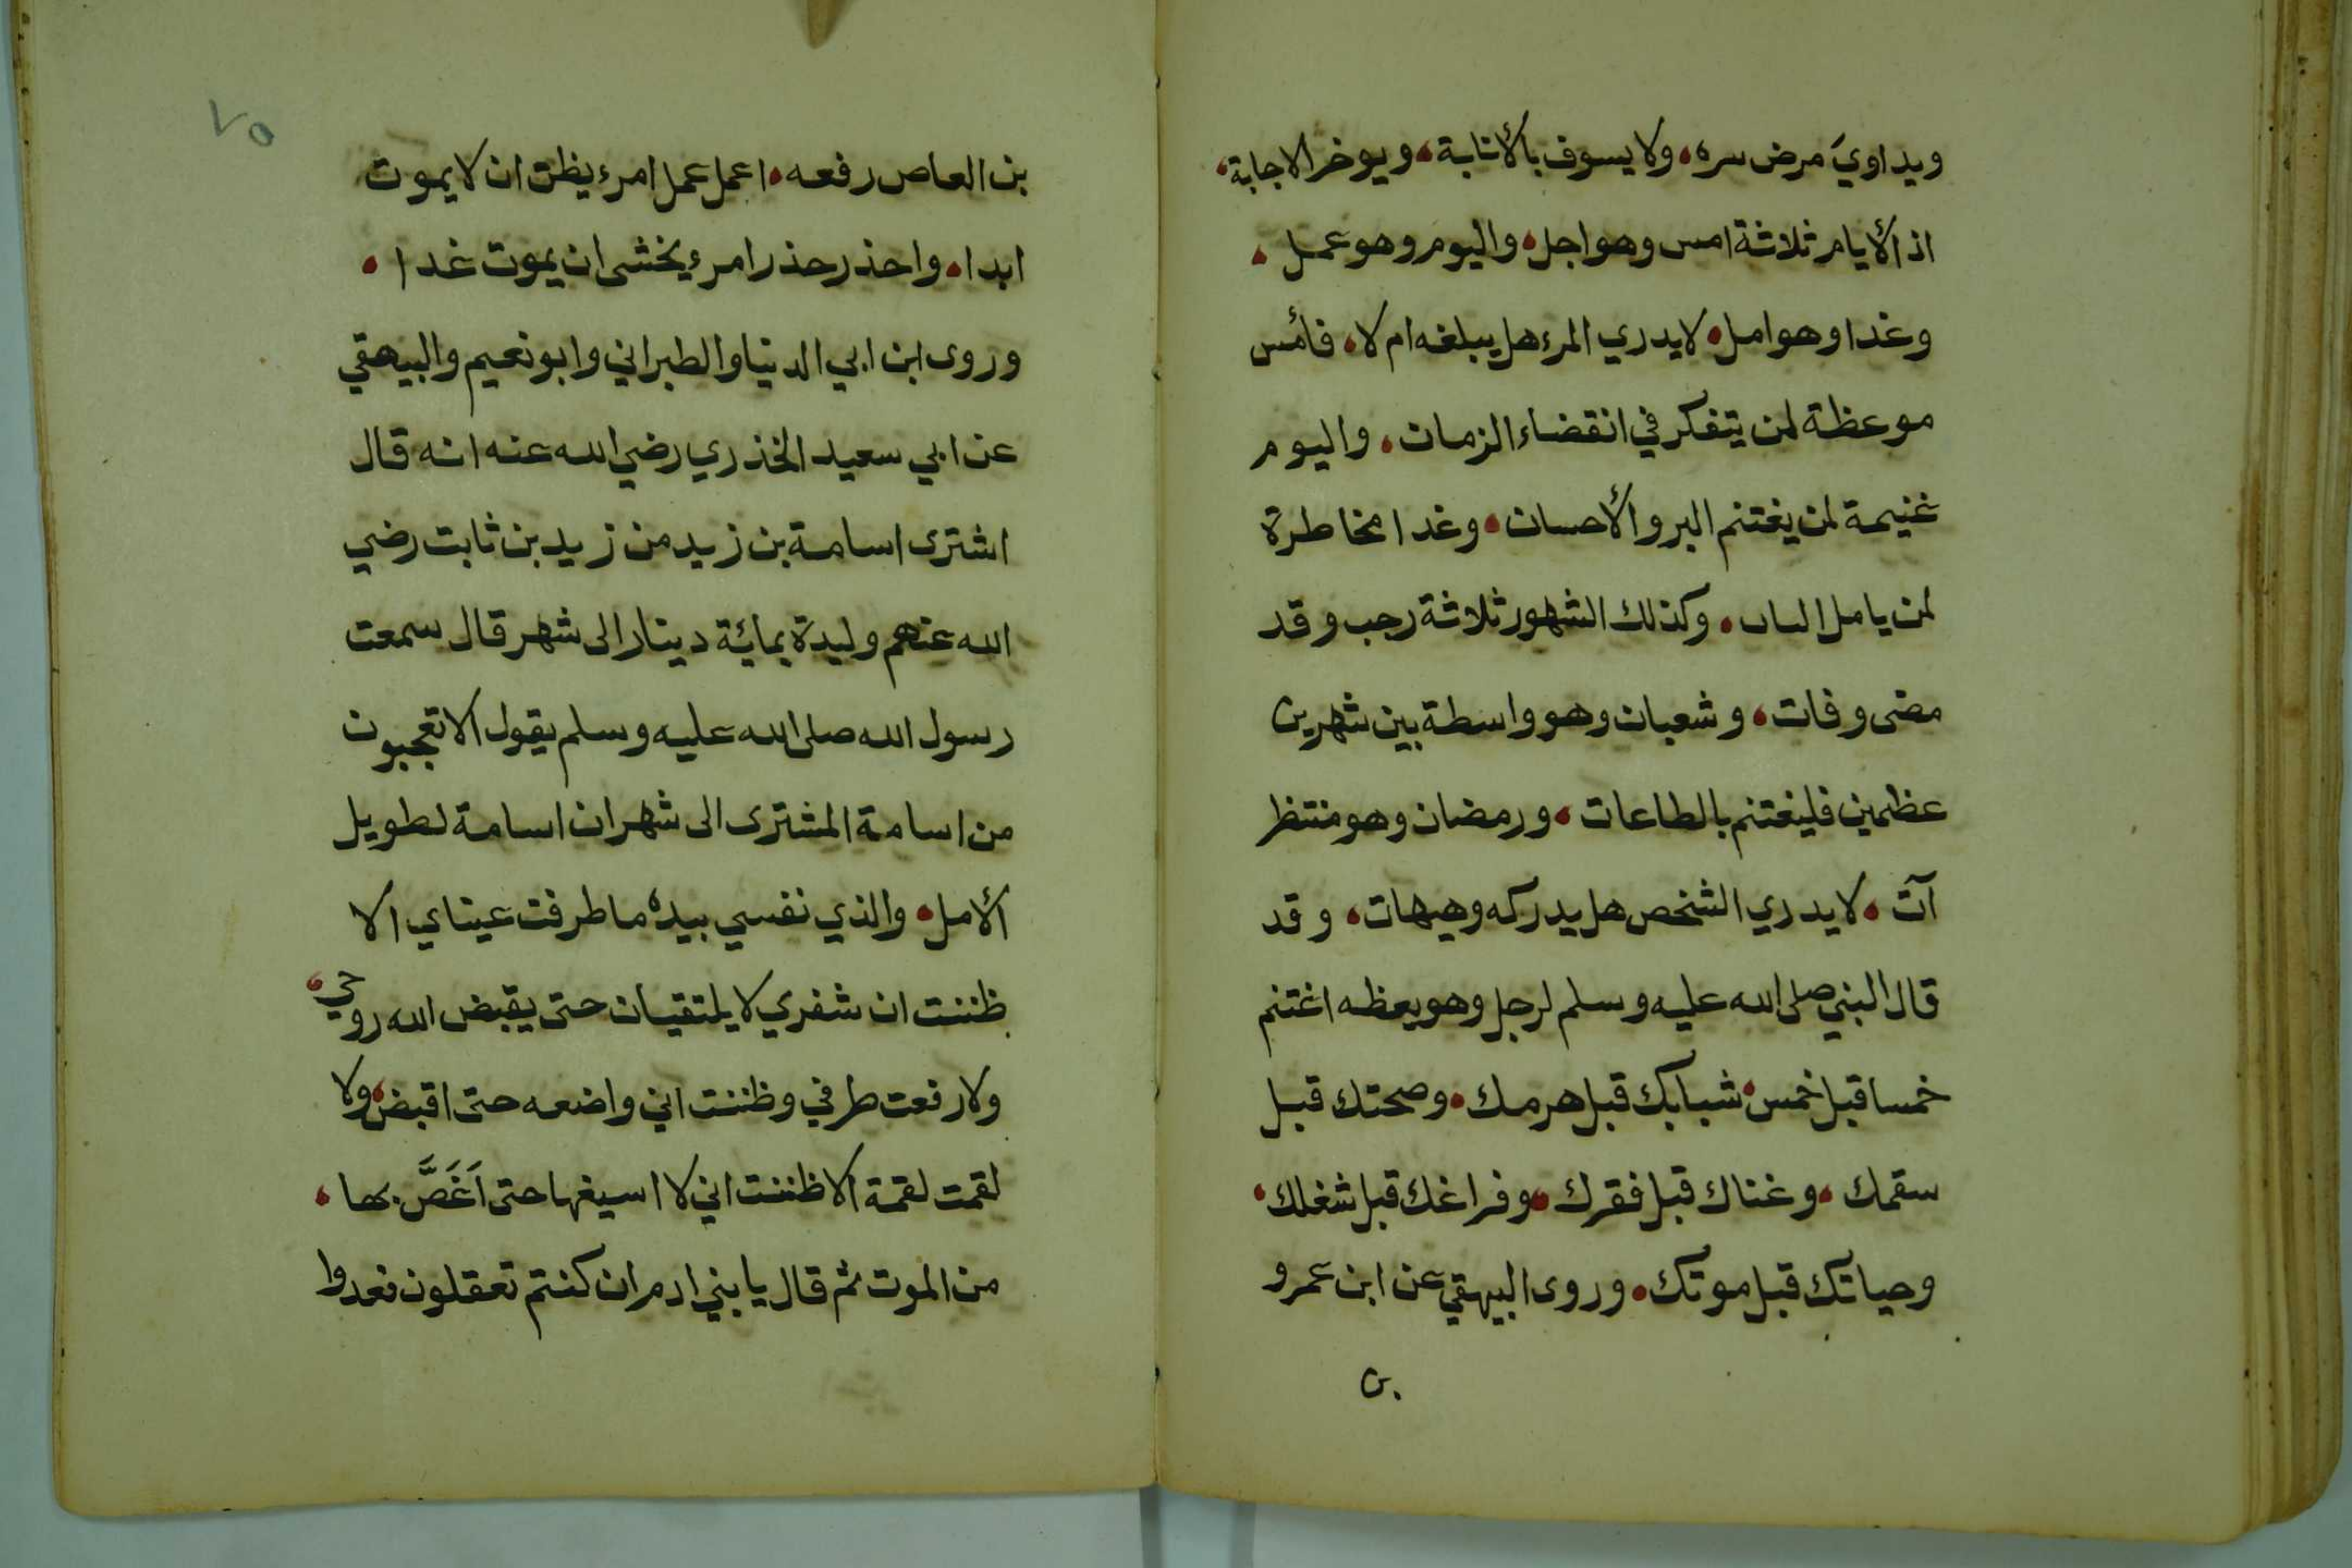 ويداوي مرض سره، ولا يسوف بالأنابة، ويوخر الاجابة،
اذ الأيام ثلاثة امس وهو اجل، واليوم وهو عمل،
وغدا وهو امل، لا يدري المرء هل يبلغه ام لا، فأمس
موعظة لمن يتفكر في انقضاء الزمان، واليوم
غنيمة لمن يغتنم البر والأحسان، وغدا مخاطرة
لمن يامل، وكذلك الشهور ثلاثة رجب وقد
مضى وفات، وشعبان وهو واسطة بين شهرين
عظيمين فليغتنم بالطاعات، ورمضان وهو منتظر
آت، لا يدري الشخص هل يدركه وهيهات، وقد
قال النبي صلى الله عليه وسلم لرجل وهو يعظه اغتنم
خمسا قبل خمس، شبابك قبل هرمك، وصحتك قبل
سقمك، وغناك قبل فقرك، وفراغك قبل شغلك،
وحياتك قبل موتك، وروى البيهقي عن ابن عمرو
بن
٧٥
بن العاص رفعه، اعمل عمل امرء يظن ان لا يموت
ابدا، واحذر حذر امرء يخشى ان يموت غدا،
وروى ابن ابي الدنيا والطبراني وابو نعيم والبيهقي
عن ابي سعيد الخذري رضي الله عنه انه قال
اشترى اسامة بن زيد من زيد بن ثابت رضي
الله عنهم وليدة بمائة دينار الى شهر قال سمعت
رسول الله صلى الله عليه وسلم يقول الا تعجبون
من اسامة المشترى الى شهر ان اسامة لطويل
الأمل، والذي نفسي بيده ما طرفت عيناي الا
ظننت ان شفري لا يلتقيان حتى يقبض الله روحي،
ولا رفعت طرفي وظننت اني واضعه حتى اقبض، ولا
لقمت لقمة الا ظننت اني لا اسيغها حتى اَغَصَّ بها،
من الموت ثم قال يا بني ادم ان كنتم تعقلون فعدوا